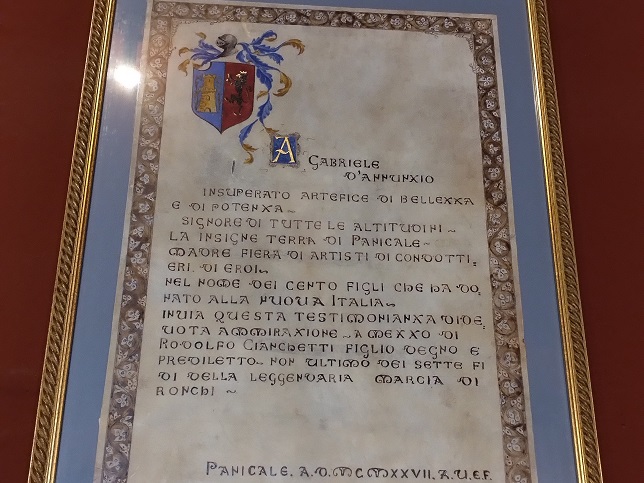 A GABRIELE
D'ANNUNXIO
INSUPERATO ARTEFICE DI BELLEXXA
E DI POTENXA~
SIGNORE DI TUTTE LE ALTITUDINI~
LA INSIGNE TERRA DI PANICALE~
MADRE FIERA DI ARTISTI DI CONDOTTI=
ERI. DI EROI~
NEL NOME DEI CENTO FIGLI CHE HA DO=
NATO ALLA NUOVA ITALIA~
INVIA QUESTA TESTIMONIANXA DI DE=
VOTA AMMIRAXIONE~A MEXXO DI
RODOLFO CIANCHETTI FIGLIO DEGNO E
PREDILETTO~ NON ULTIMO DEI SETTE FI
DI DELLA LEGGENDARIA MARCIA DI
RONCHI~
PANICALE. A.D. MCMXXVII. A.V.E.F.